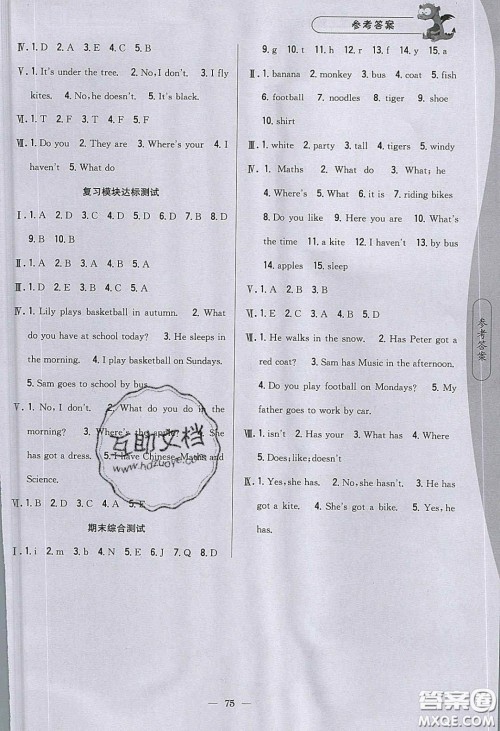 参考答案
Ⅳ. 1. D 2. A 3. E 4. C 5. B
Ⅴ. 1. It's under the tree. 2. No, I don't. 3. I fly
kites. 4. No, he doesn't. 5. It's black.
Ⅵ. 1. T 2. F 3. F 4. T 5. F
Ⅶ. 1. Do you 2. They are 3. Where's your 4. I
haven't 5. What do
复习模块达标测试
Ⅰ. 1. A 2. D 3. C 4. D 5. A 6. C 7. D 8. D
9. D 10. B
Ⅱ. 1. A 2. D 3. B 4. B 5. A
Ⅲ. 1. D 2. C 3. A 4. B 5. A
Ⅳ. 1. Lily plays basketball in autumn. 2. What
do you have at school today? 3. He sleeps in
the morning. 4. I play basketball on Sundays.
5. Sam goes to school by bus.
Ⅴ. 1. No, I don't. 2. What do you do in the
morning? 3. Where's the apple? 4. She
has got a dress. 5. I have Chinese, Maths and
Science.
Ⅵ. 1. B 2. D 3. C 4. A 5. E
期末综合测试
Ⅰ. 1. i 2. m 3. b 4. N 5. E 6. D 7. Q 8. D
9. g 10. t 11. h 12. f 13. j 14. y 15. a
Ⅱ. 1. banana 2. monkey 3. bus 4. coat 5. fish
6. football 7. noodles 8. tiger 9. shoe
10. shirt
Ⅲ. 1. white 2. party 3. tall 4. tigers 5. windy
Ⅳ. 1. Maths 2. What do 3. What; he
4. Where's 5. What is 6. What 7. riding bikes
8. Do you like 9. Here you are 10. What's
the time 11. in autumn 12. I haven't 13. by bus
14. apples 15. sleep
Ⅴ. 1. B 2. A 3. B 4. B 5. C
Ⅵ. 1. D 2. C 3. A 4. E 5. B
Ⅶ. 1. He walks in the snow. 2. Has Peter got
a red coat? 3. Sam has Music in the afternoon.
4. Do you play football on Mondays? 5. My
father goes to work by car.
Ⅷ. 1. isn't 2. Has your 3. What has 4. Where
5. Does; like; doesn't
Ⅸ. 1. Yes, she has. 2. Yes, she does. 3. He has
got a kite. 4. She's got a bike. 5. Yes, he has.
参考答案
互助文档
www.hdzuoye.com
75
答案圈
MXQE.COM